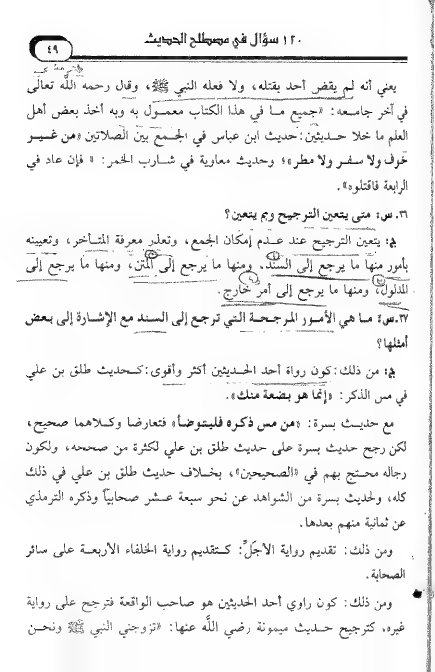 ١٢٠ سؤال في مصطلح الحديث
٤٩
يعني أنه لم يقض أحد بقتله، ولا فعله النبي ﷺ، وقال رحمه الله تعالى
في آخر جامعه: «جميع ما في هذا الكتاب معمول به وبه أخذ بعض أهل
العلم ما خلا حديثين: حديث ابن عباس في الجمع بين الصلاتين «من غير
خوف ولا سفر ولا مطر»؛ وحديث معاوية في شارب الخمر: «فإن عاد في
الرابعة فاقتلوه».
٣٦. س: متى يتعين الترجيح وبم يتعين؟
ج: يتعين الترجيح عند عدم إمكان الجمع، وتعذر معرفة المتأخر، وتعيينه
بأمور منها ما يرجع إلى السند، ومنها ما يرجع إلى المتن، ومنها ما يرجع إلى
المدلول، ومنها ما يرجع إلى أمر خارج.
٣٧. س: ما هي الأمور المرجحة التي ترجع إلى السند مع الإشارة إلى بعض
أمثلها؟
ج: من ذلك: كون رواة أحد الحديثين أكثر وأقوى: كحديث طلق بن علي
في مس الذكر: «إنما هو بضعة منك».
مع حديث بسرة: «من مس ذكره فليتوضأ» فتعارضا وكلاهما صحيح،
لكن رجح حديث بسرة على حديث طلق بن علي لكثرة من صححه، ولكون
رجاله محتج بهم في «الصحيحين»، بخلاف حديث طلق بن علي في ذلك
كله، ولحديث بسرة من الشواهد عن نحو سبعة عشر صحابيًا وذكره الترمذي
عن ثمانية منهم بعدها.
ومن ذلك: تقديم رواية الأجلِّ: كتقديم رواية الخلفاء الأربعة على سائر
الصحابة.
ومن ذلك: كون راوي أحد الحديثين هو صاحب الواقعة فترجح على رواية
غيره، كترجيح حديث ميمونة رضي الله عنها: «تزوجني النبي ﷺ ونحن